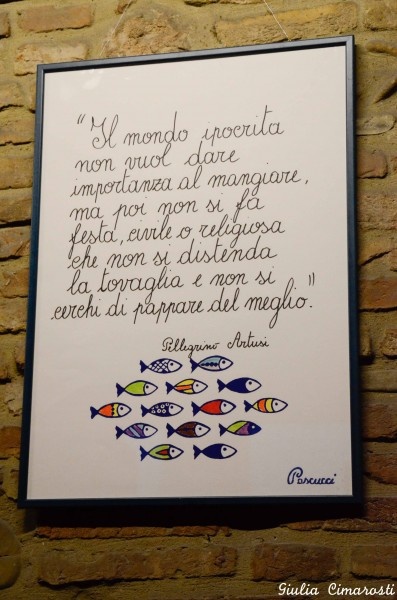 "Il mondo ipocrita
non vuol dare
importanza al mangiare,
ma poi non si fa
festa, civile o religiosa
che non si distenda
la tovaglia e non si
cerchi di pappare del meglio."
Pellegrino Artusi
Pascucci
Giulia Cimarosti